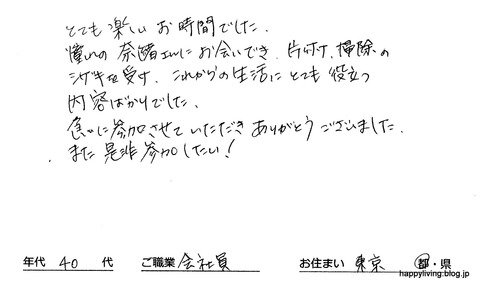 とても楽しいお時間でした。
憧れの奈緒さんにお会いでき、片付け、掃除の
シゲキを受け、これからの生活にとても役立つ
内容ばかりでした。
会に参加させていただきありがとうございました。
また是非参加したい!
年代 40 代 ご職業 会社員 お住まい 東京 都・県
happyliving.blog.jp